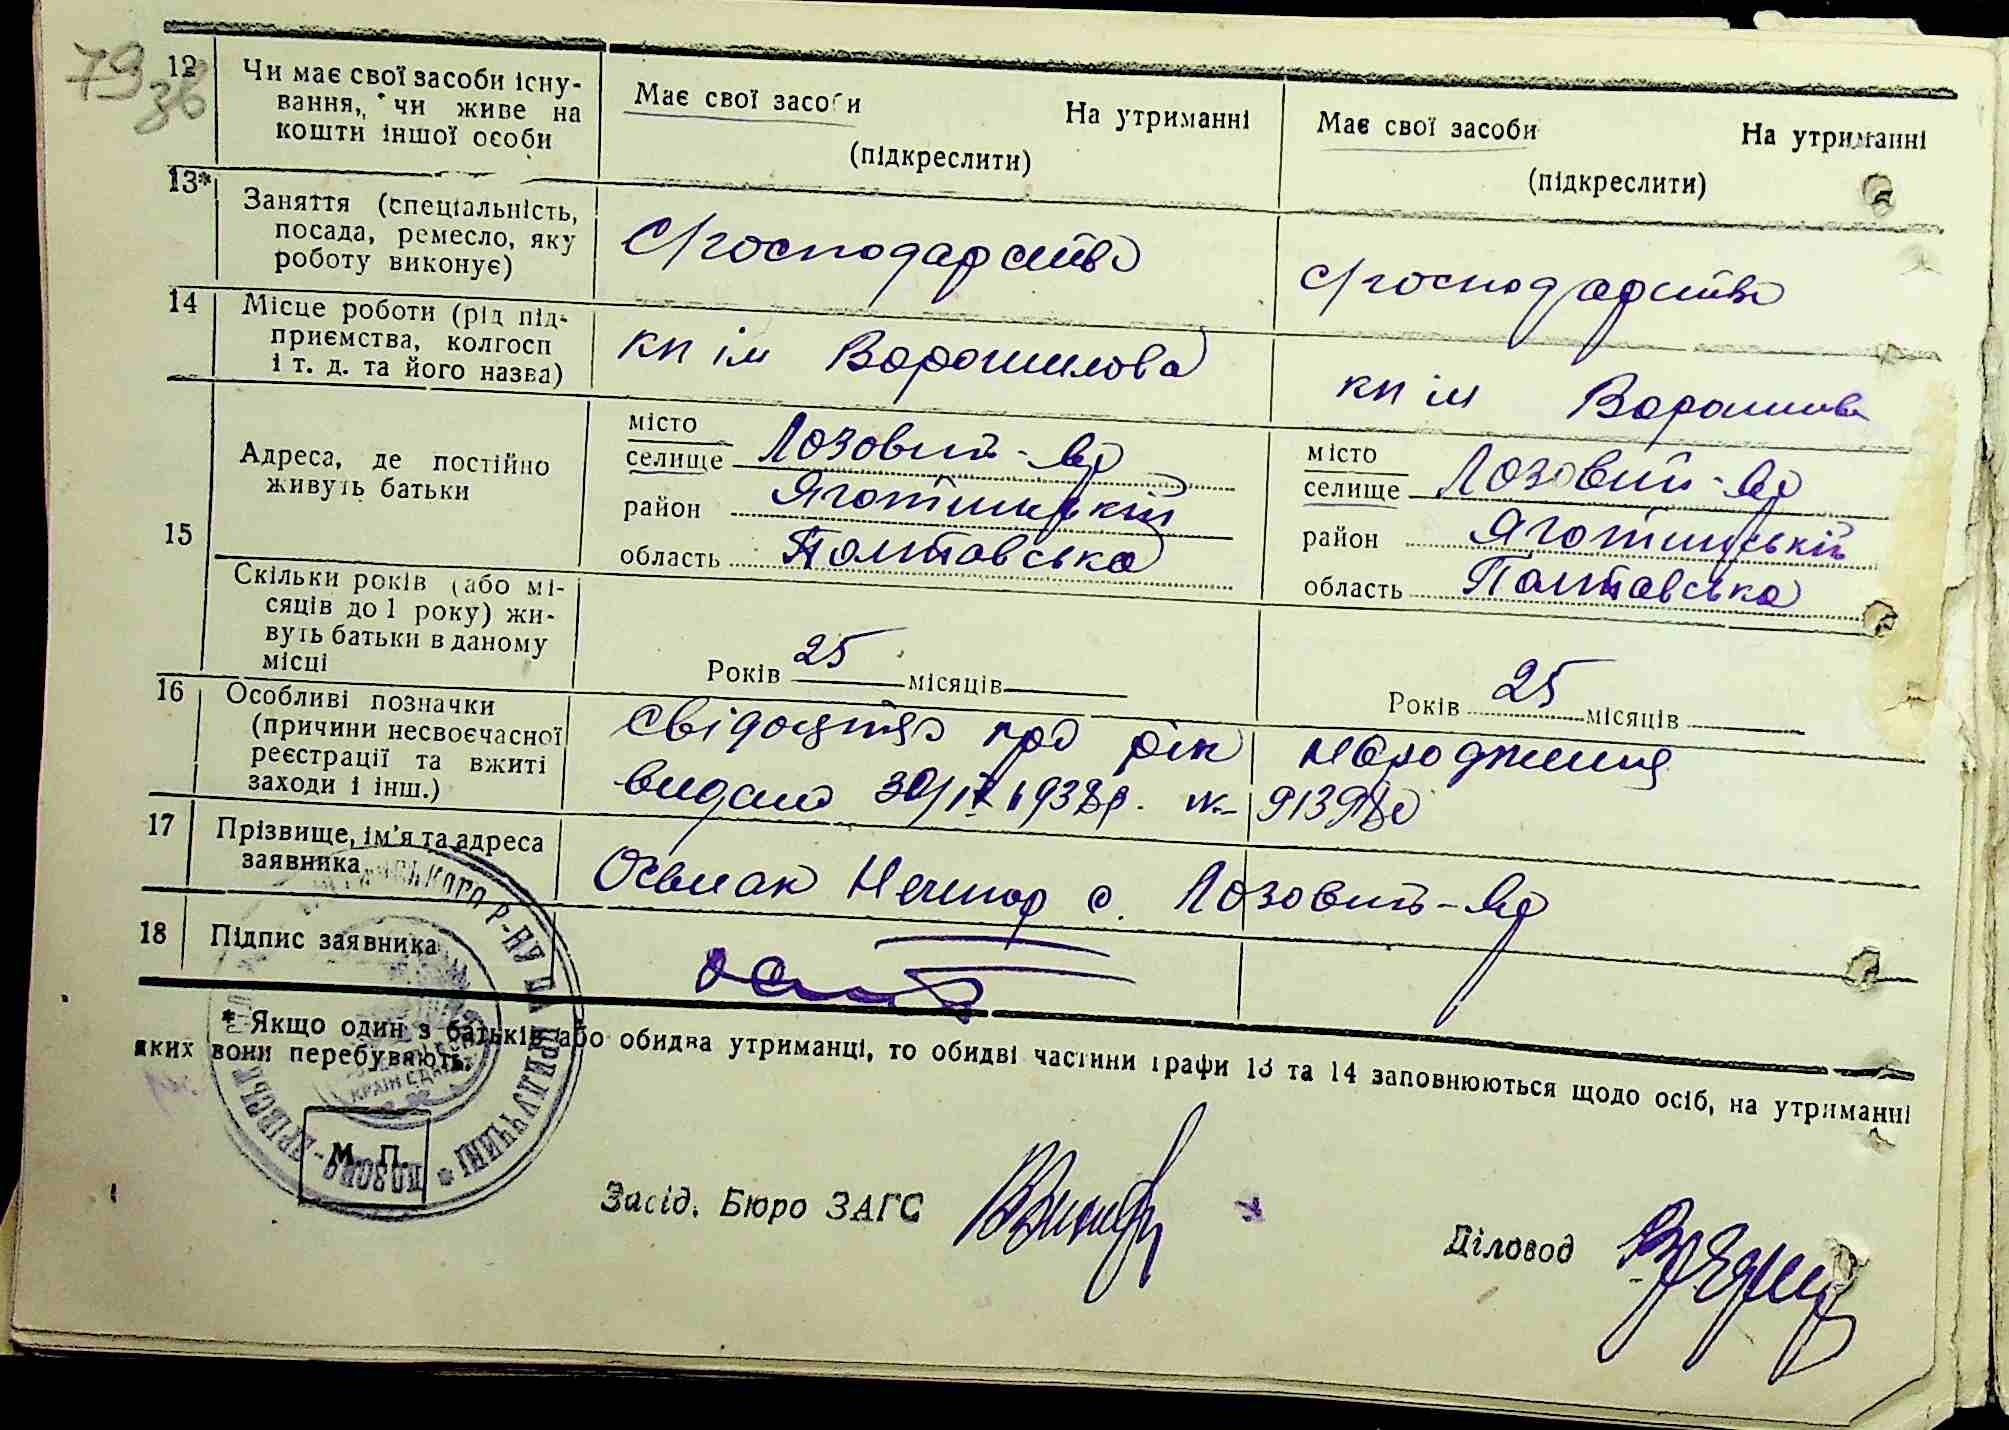 79
зв
12 Чи має свої засоби існу-
вання, чи живе на
кошти іншої особи
Має свої засоби На утриманні
(підкреслити)
Має свої засоби На утриманні
(підкреслити)
13* Заняття (спеціальність,
посада, ремесло, яку
роботу виконує)
С/господарство
с/господарство
14 Місце роботи (рід під-
приємства, колгосп
і т. д. та його назва)
кп ім Ворошилова
кп ім Ворошилова
15 Адреса, де постійно
живуть батьки
місто
селище Лозовий-Яр
район Яготинський
область Полтавська
місто
селище Лозовий-Яр
район Яготинський
область Полтавська
Скільки років (або мі-
сяців до 1 року) жи-
вуть батьки в даному
місці
Років 25 місяців
Років 25 місяців
16 Особливі позначки
(причини несвоєчасної
реєстрації та вжиті
заходи і інш.)
Свідоцтво про рік народження
видано 30/IX 1938р. №
17 Прізвище, ім'я та адреса
заявника
Осьмак Нечипор с. Лозовий-Яр
18 Підпис заявника
* Якщо один з батьків або обидва утриманці, то обидві частини графи 13 та 14 заповнюються щодо осіб, на утриманні
яких вони перебувають.
М. П.
Засід. Бюро ЗАГС
Діловод